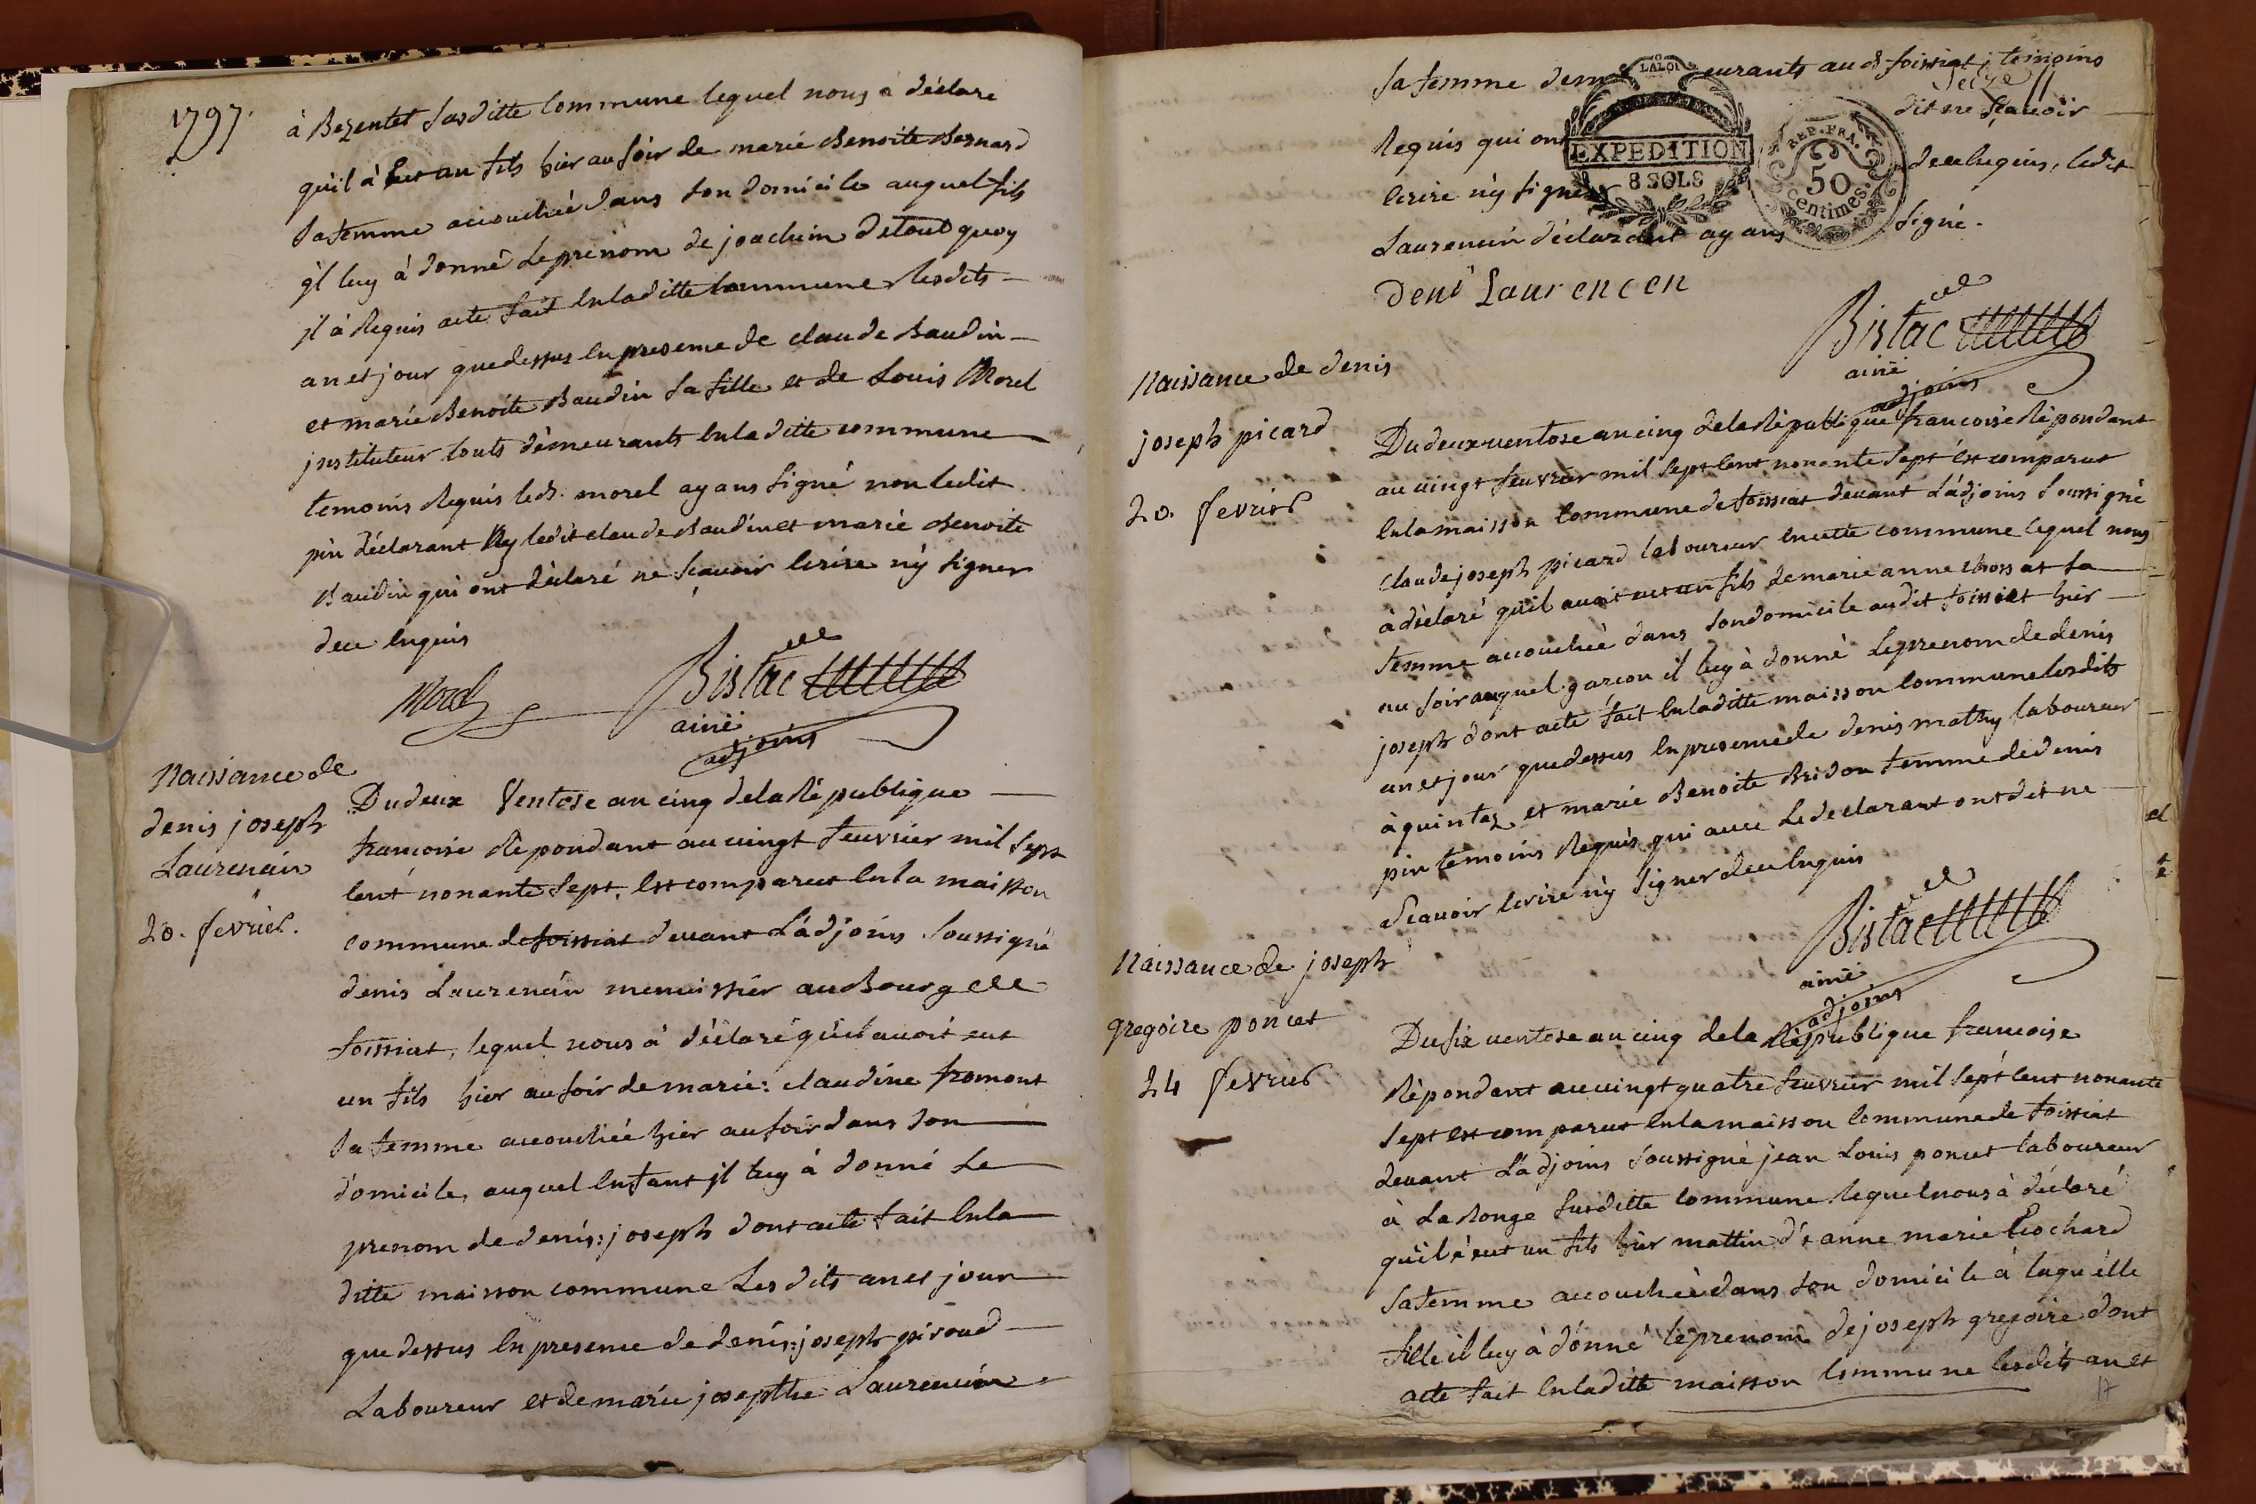 1797.
à Bezentet susditte Commune lequel nous à déclaré
qu'il à Eut un fils hier au soir de marie Benoite Bernard
sa femme accouchée dans son domicile auquel fils
il luy à donné Le prenom de joachim detout quoy
il à Requis acte fait En laditte Commune Lesdits
an et jour que dessus En presence de claude Baudin
et marie Benoite Baudin sa fille et de Louis Morel
instituteur touts démeurants En la ditte commune
temoins Requis led. morel ayans signé non ledit
pin déclarant Ny ledit claude Baudin et marie Benoite
Baudin qui ont déclaré ne scavoir Ecrire n'y signer
dece Enquis
Morel
Bistac
ainé
adjoins
Naissance de
denis joseph
Laurencin
20. fevrier.
Du deux Ventose an cinq de la République
francoise Répondant au vingt feuvrier mil sept
Cent nonante sept, Est comparut En la maisson
commune de foissiat devant L'adjoins soussigné
denis Laurencin menuissier au Bourg de
foissiat, lequel nous à déclaré qu'il avoit eut
un fils hier au soir de marie: claudine fromont
sa femme accouchée hier au soir dans son
domicile, auquel Enfant il luy à donné Le
prenom de denis: joseph dont acte fait En la
ditte maisson commune Les dits an et jour
que dessus En presence de denis: joseph piroud
Laboureur et de marie josepthe Laurencin
sa femme demeurants aud. foissiat temoins
Requis qui ont dit ne scavoir
Ecrire n'y signer de ce Enquis, ledit
Laurencin déclarant ayans signé.
LA LOI
EXPEDITION
8 SOLS
REP. FRA.
50
Centimes.
deni Laurencen
Bistac
ainé
adjoins
Naissance de denis
joseph picard
20. fevrier
Du deux ventose an cinq de la République francoise Répondant
au vingt feuvrier mil sept Cent nonante sept Est comparut
En la maisson Commune de foissiat devant L'adjoins soussigné
Claude joseph picard laboureur En cette commune lequel nous
à déclaré qu'il avoit eut un fils de marie anne chossat sa
femme accouchée dans son domicile audit foissiat hier
au soir auquel garcon il luy à donné Le prenom de denis
joseph dont acte fait En laditte maisson Commune Lesdits
an et jour que dessus En presence de denis mathy laboureur
à quintez et marie Benoite Bridon femme de denis
pin temoins Requis qui avec Le declarant ont dit ne
scavoir Ecrire n'y signer de ce Enquis
Bistac
ainé
adjoins
Naissance de joseph
gregoire poncet
24 fevrier
Du six ventose an cinq de la République francoise
Répondant au vingt quatre feuvrier mil sept Cent nonante
sept Est comparut En la maisson Commune de foissiat
devant L'adjoins soussigné jean Louis poncet laboureur
à La Rouge susditte Commune lequel nous à déclaré
qu'il à eut un fils hier mattin d'anne marie Cochard
sa femme accouchée dans son domicile à laquélle
fille il luy à donné le prenom de joseph gregoire dont
acte fait En laditte maisson Commune lesdits an et
17